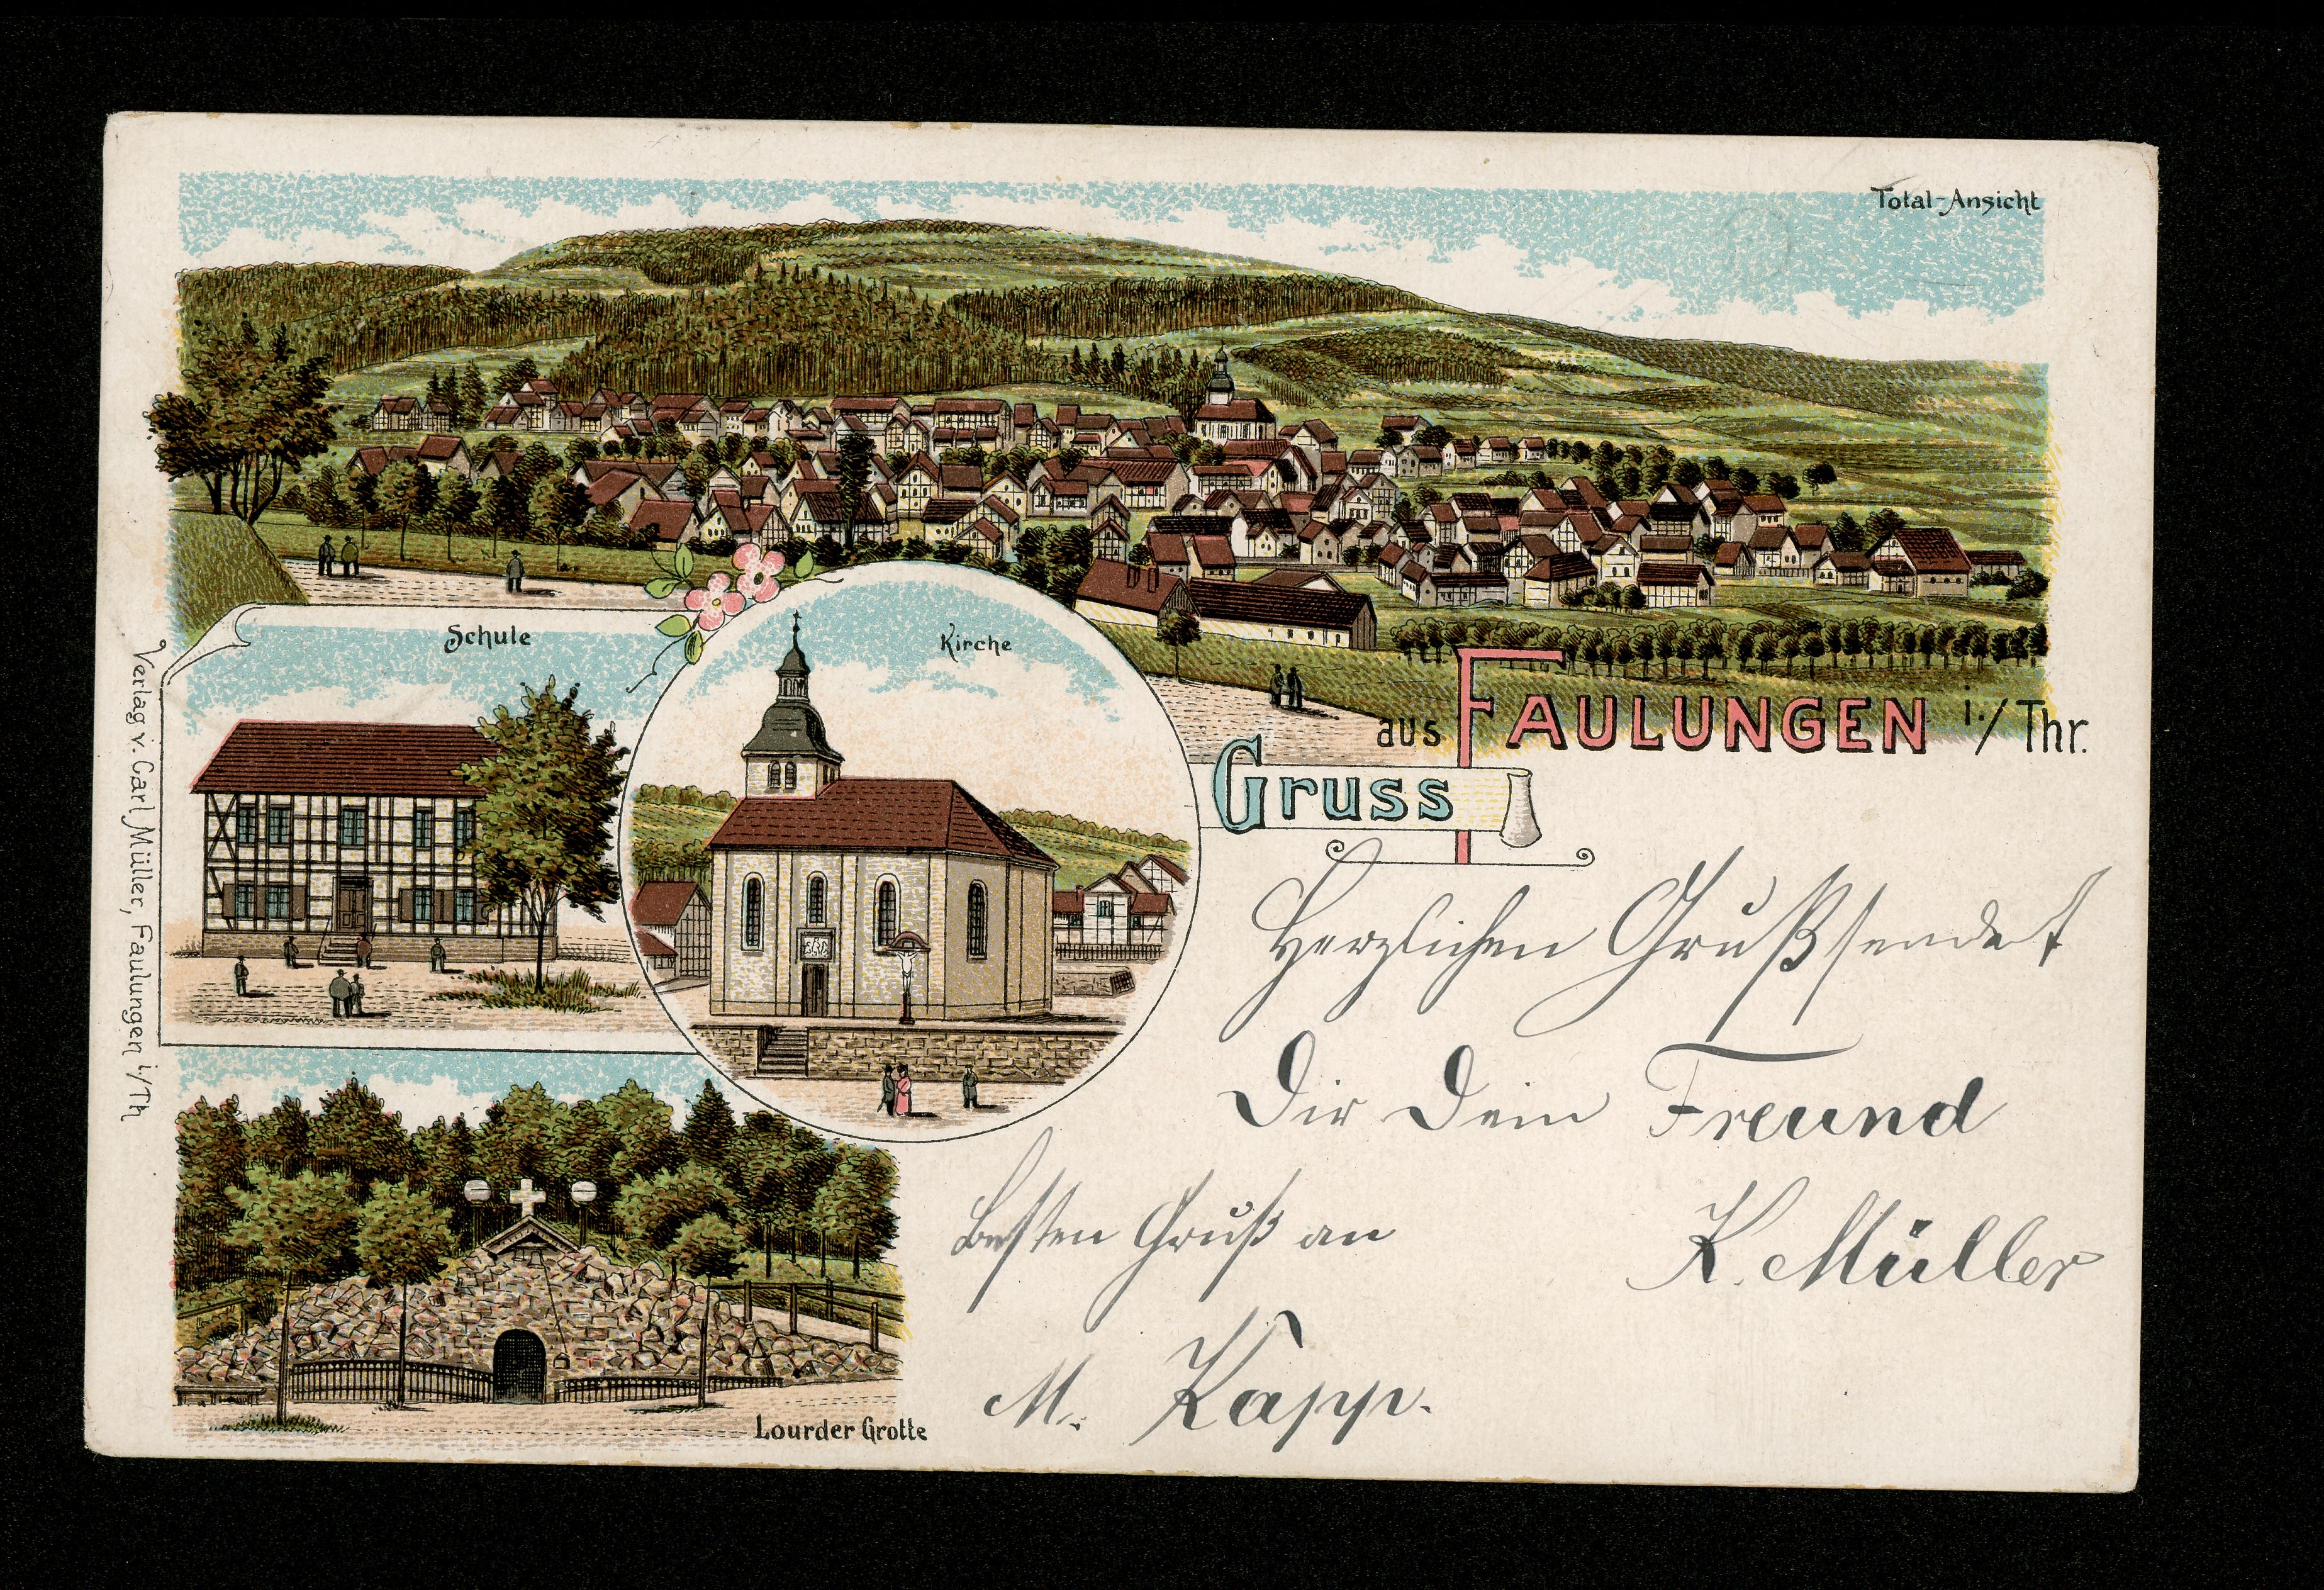 Total-Ansicht
Schule
Kirche
Gruss
aus FAULUNGEN i./Thr.
Verlag v. Carl Müller, Faulungen i/Th
Lourder Grotte
Herzlichen Gruß sendet
Dir Dein Freund
K. Müller
Besten Gruß an
M. Kapp.